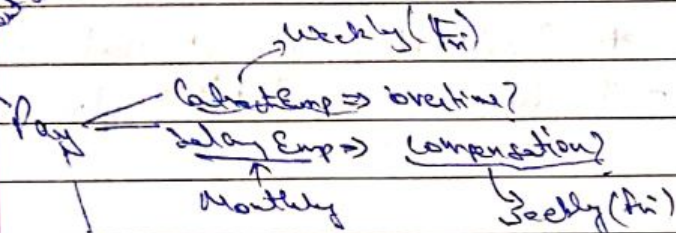 Weekly (Fri)
Contract Emp => overtime?
Pay
Salary Emp => Compensation?
Monthly
Weekly (Fri)